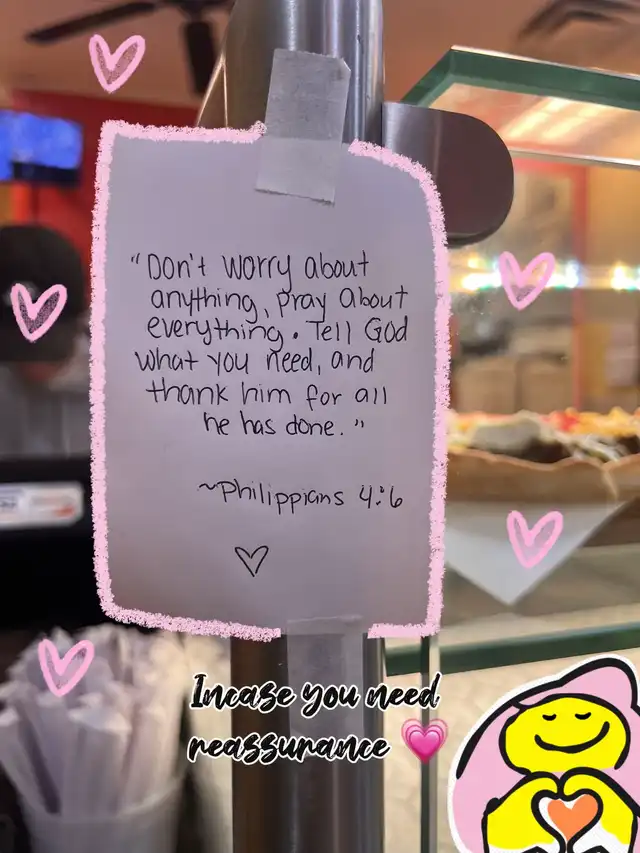 "Don't worry about
anything, pray about
everything. Tell God
what you need, and
thank him for all
he has done."
~Philippians 4:6
Incase you need
reassurance 💗